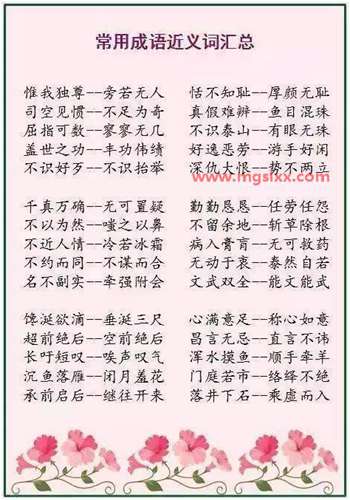 常用成语近义词汇总
惟我独尊--旁若无人
司空见惯--不足为奇
屈指可数--寥寥无几
盖世之功--丰功伟绩
不识好歹--不识抬举
恬不知耻--厚颜无耻
真假难辨--鱼目混珠
不识泰山--有眼无珠
好逸恶劳--游手好闲
深仇大恨--势不两立
www.mgslxx.com
千真万确--无可置疑
不以为然--嗤之以鼻
不近人情--冷若冰霜
不约而同--不谋而合
名不副实--牵强附会
勤勤恳恳--任劳任怨
不留余地--斩草除根
病入膏肓--无可救药
无动于衷--泰然自若
文武双全--能文能武
馋涎欲滴--垂涎三尺
超前绝后--空前绝后
长吁短叹--唉声叹气
沉鱼落雁--闭月羞花
承前启后--继往开来
心满意足--称心如意
昌言无忌--直言不讳
浑水摸鱼--顺手牵羊
门庭若市--络绎不绝
落井下石--乘虚而入